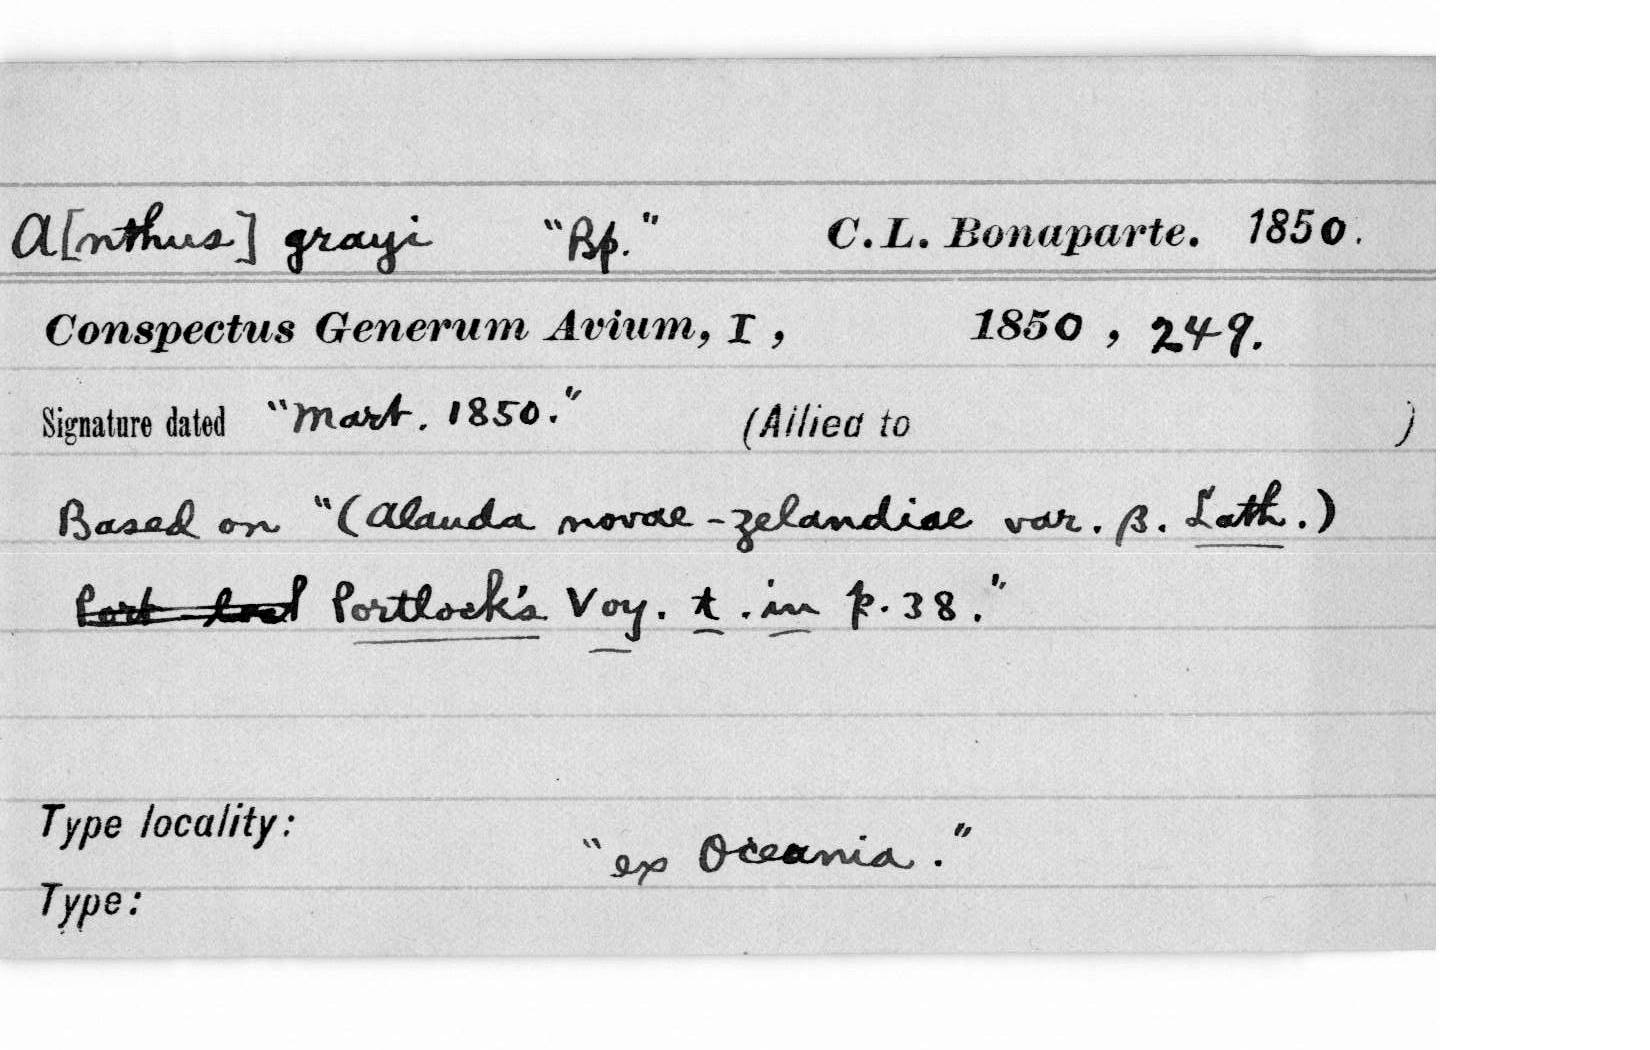 A[nthus] grayi "Bp." C.L. Bonaparte. 1850.
Conspectus Generum Avium, I, 1850, 249.
Signature dated "Mart. 1850." (Allied to )
Based on "(Alauda novae-zelandiae var. β. Lath.)
Portlock's Voy. t. in p. 38."
Type locality:
"ex Oceania."
Type: